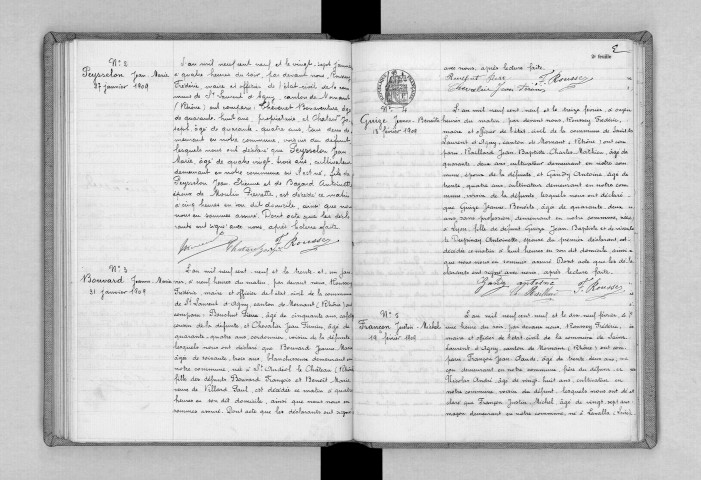 N° 2
Peysselon Jean Marie
27 janvier 1909
L'an mil neuf cent neuf et le vingt-sept janvier
à quatre heures du soir, par devant nous, Roussey
Frédéric, maire et officier de l'état civil de la com-
mune de St Laurent d'Agny, canton de Mornant
(Rhône) ont comparu: Thévenet Bonaventure âgé
de quarante huit ans, propriétaire et Chatard Jo-
seph, âgé de quarante-quatre ans, tous deux de-
meurant en notre commune, voisins du défunt
lesquels nous ont déclaré que Peysselon Jean
Marie, âgé de quatre vingt trois ans, cultivateur
demeurant en notre commune où il est né, fils de
Peysselon Jean Etienne et de Bajard Antoinette
époux de Moulin Pierrette, est décédé ce matin
à cinq heures en son dit domicile, ainsi que nous
nous en sommes assuré. Dont acte que les décla-
rants ont signé avec nous, après lecture faite
F. Roussey
N° 3
Bouvard Jeanne Marie
31 janvier 1909
L'an mil neuf cent neuf et le trente et un jan-
vier, à neuf heures du matin, par devant nous, Roussey
Frédéric, maire et officier de l'état civil de la commune
de St Laurent d'Agny, canton de Mornant (Rhône) ont
comparu: Pierre, âgé de cinquante ans,
cousin de la défunte, et Chevalier Jean Firmin, âgé de
quarante-quatre ans, cordonnier, voisin de la défunte
lesquels nous ont déclaré que Bouvard Jeanne Marie
âgée de soixante trois ans, blanchisseuse demeurant en
notre commune, née à St Andéol le Château (Rhône)
fille des défunts Bouvard François et Benoit Marie
veuve de Villard Paul, est décédée ce matin à quatre
heures en son dit domicile, ainsi que nous nous en
sommes assuré. Dont acte que les déclarants ont signé
2e feuille
avec nous, après lecture faite.
F. Roussey
Chevalier Jean Firmin
N° 4
Guize Jeanne-Benoite
13 février 1909
L'an mil neuf cent neuf et le treize février, à onze
heures du matin, par devant nous, Roussey Frédéric,
maire et officier de l'état civil de la commune de Saint
Laurent d'Agny, canton de Mornant (Rhône) ont com-
paru, Jean-Baptiste Charles Mathieu, âgé de
quarante deux ans, cultivateur demeurant en notre com-
mune, époux de la défunte, et Gandy Antoine, âgé de
trente quatre ans, cultivateur demeurant en notre com-
mune, voisin de la défunte, lesquels nous ont déclaré
que Guize Jeanne Benoite, âgée de quarante deux
ans, sans profession, demeurant en notre commune, née
à Lyon, fille de défunt Guize Jean Baptiste et de vivante
Antoinette, épouse du premier déclarant, est
décédée ce matin à huit heures en son dit domicile, ainsi
que nous nous en sommes assuré. Dont acte que les dé-
clarants ont signé avec nous, après lecture faite.
Gandy antoine
F. Roussey
N° 5
Françon Justin-Michel
19 février 1909
L'an mil neuf cent neuf et le dix-neuf février, à
une heure du soir, par devant nous, Roussey Frédéric,
maire et officier de l'état civil de la commune de Saint
Laurent d'Agny, canton de Mornant, (Rhône) ont com-
paru: Françon Jean, âgé de trente deux ans, ma-
çon demeurant en notre commune, frère du défunt, et
Nicolas André, âgé de vingt-huit ans, cultivateur en
notre commune, voisin du défunt, lesquels nous ont dé-
claré que Françon Justin Michel, âgé de vingt-sept ans
maçon demeurant en notre commune, né à Lavalla (Loire)